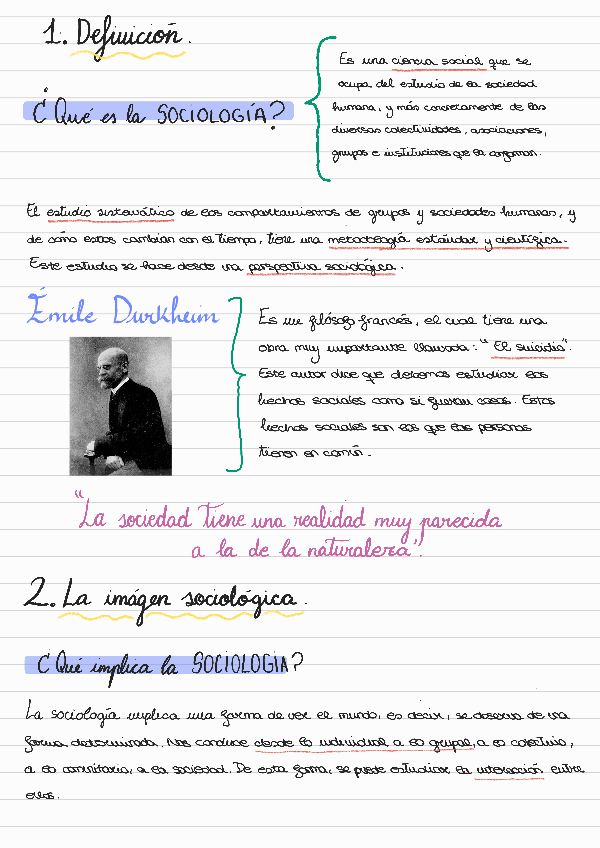 1. Definición.
¿Qué es la SOCIOLOGÍA?
Es una ciencia social que se
ocupa del estudio de la sociedad
humana, y más concretamente de las
diversas colectividades, asociaciones,
grupos e instituciones que la conforman.
El estudio sistemático de los comportamientos de grupos y sociedades humanas, y
de cómo estos cambian con el tiempo, tiene una metodología estándar y científica.
Este estudio se hace desde una perspectiva sociológica.
Émile Durkheim
Es un filósofo francés, el cual tiene una
obra muy importante llamada: "El suicidio".
Este autor dice que debemos estudiar los
hechos sociales como si fueran cosas. Estos
hechos sociales son los que las personas
tienen en común.
"La sociedad tiene una realidad muy parecida
a la de la naturaleza".
2. La imágen sociológica.
¿Qué implica la SOCIOLOGIA?
La sociología implica una forma de ver el mundo, es decir, se observa de una
forma determinada. Nos conduce desde lo individual a lo grupal, a lo colectivo,
a lo comunitario, a la sociedad. De esta forma, se puede estudiar la interacción entre
ellos.